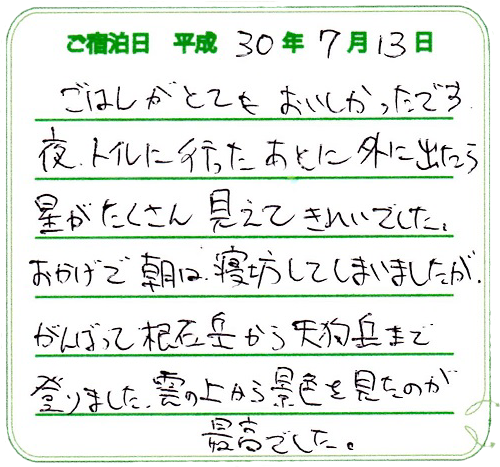 ご宿泊日 平成 30 年 7 月 13 日
ごはんがとてもおいしかったです.
夜、トイレに行ったあとに外に出たら
星がたくさん見えてきれいでした。
おかげで朝は、寝坊してしまいましたが、
がんばって根石岳から天狗岳まで
登りました。雲の上から景色を見たのが
最高でした。